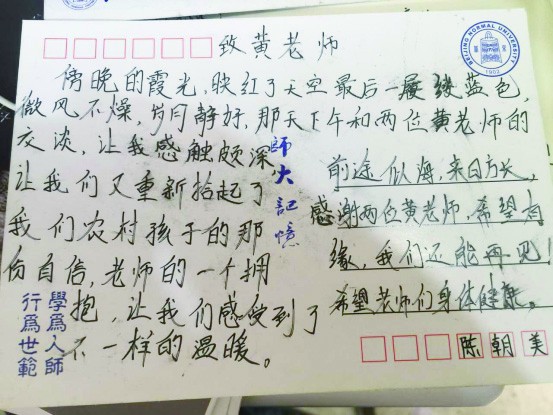 致黄老师
BEIJING NORMAL UNIVERSITY
1902
傍晚的霞光,映红了天空最后一展蓝色,
微风不燥,岁月静好,那天下午和两位黄老师的
交谈,让我感触颇深
让我们又重新拾起了
我们农村孩子的那
份自信,老师的一个拥
抱,让我们感受到了
不一样的温暖。
師大記憶
前途似海,来日方长,
感谢两位黄老师,希望有
缘,我们还能再见!
希望老师们身体健康。
學為人師
行為世範
陈朝美